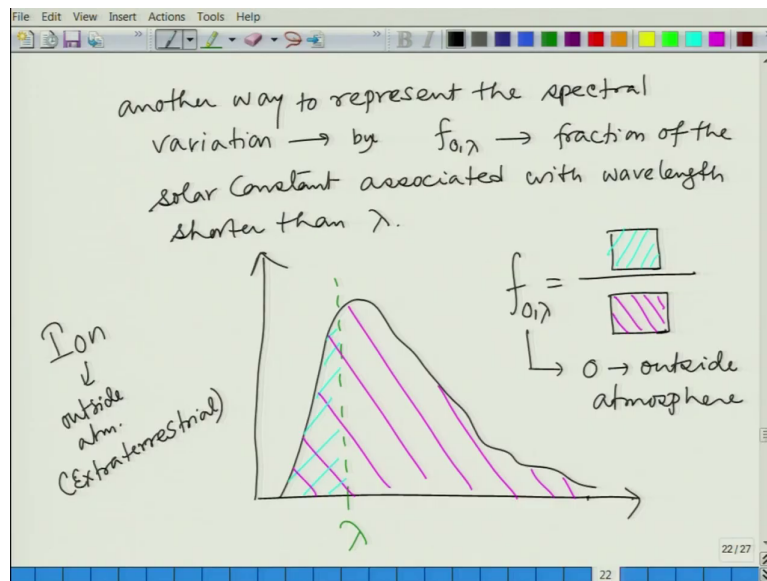 File Edit View Insert Actions Tools Help
B I
another way to represent the spectral
variation → by f0,λ → fraction of the
solar Constant associated with wavelength
shorter than λ.
f0,λ =
0 → outside
atmosphere
Ion
↓
outside
atm.
(Extraterrestrial)
λ
22/27
22